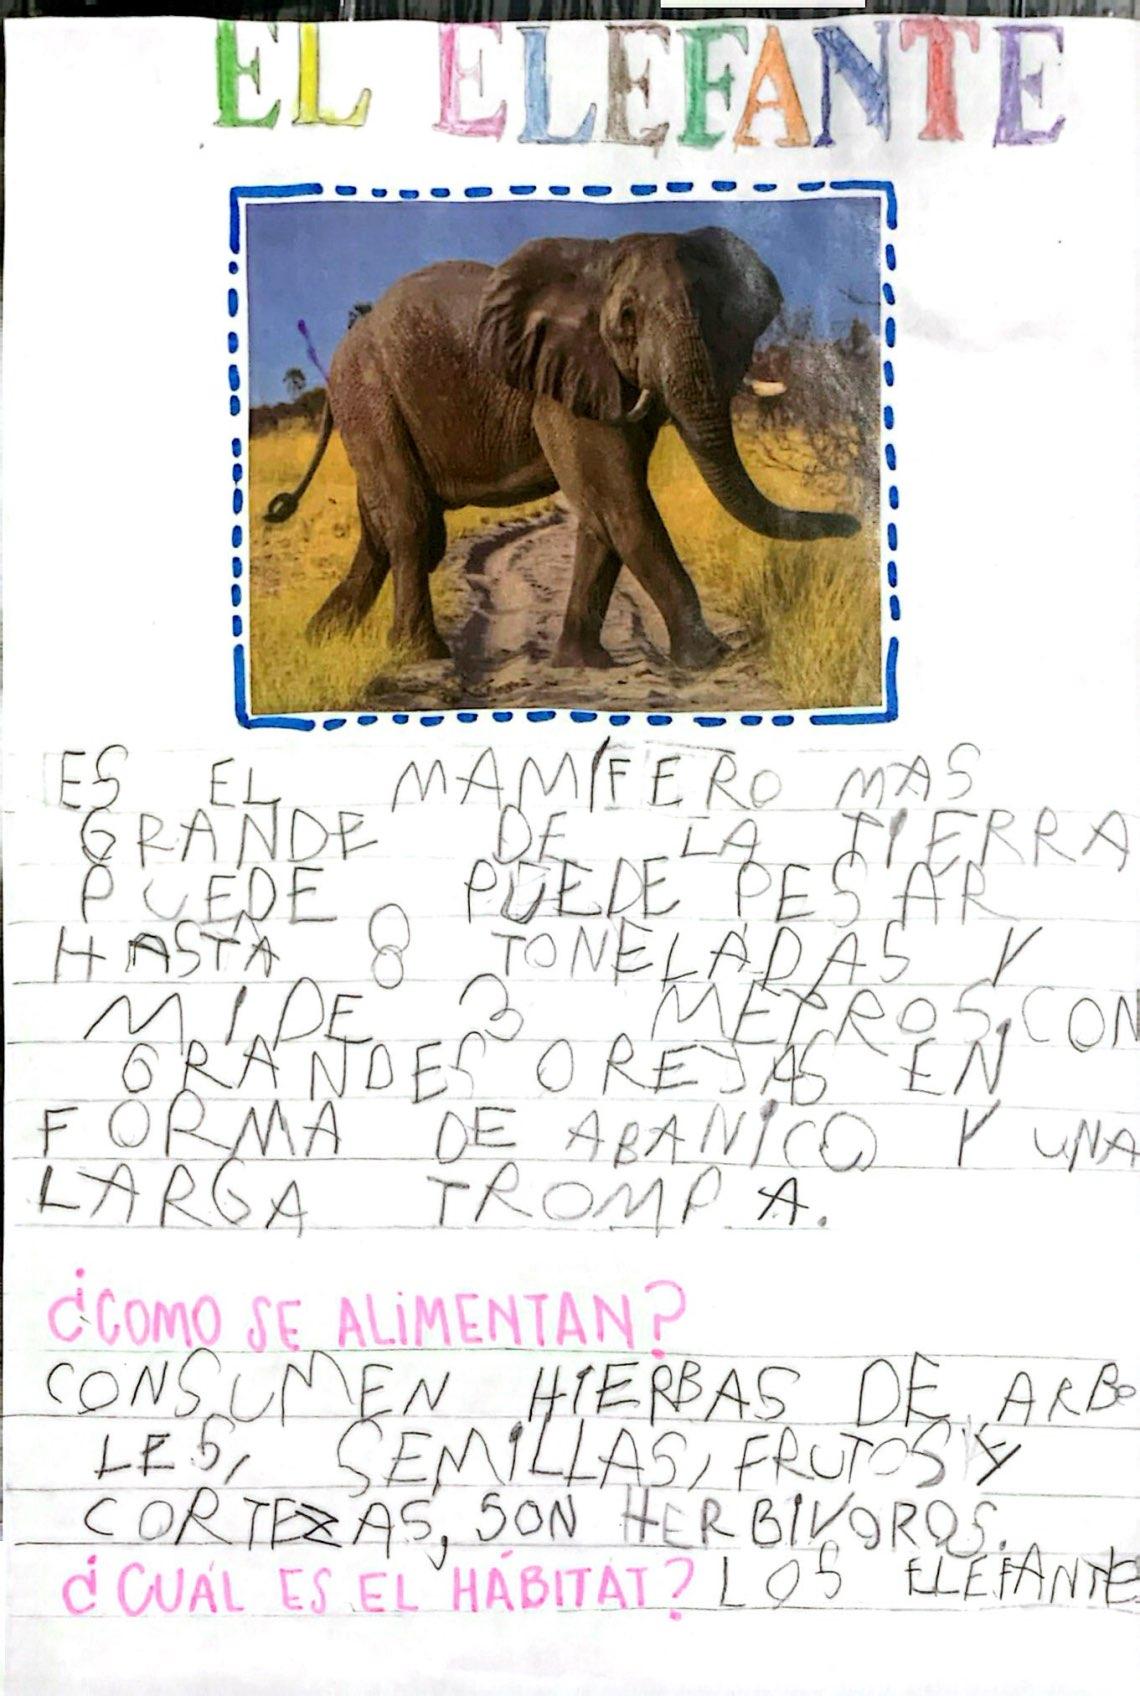 EL ELEFANTE
ES EL MAMÍFERO MAS
GRANDE DE LA TIERRA
PUEDE PUEDE PESAR
HASTA 8 TONELADAS Y
MIDE 3 METROS, CON
GRANDES OREJAS EN
FORMA DE ABANICO Y UNA
LARGA TROMPA.
¿COMO SE ALIMENTAN?
CONSUMEN HIERBAS DE ARBO
LES, SEMILLAS, FRUTOS Y
CORTEZAS, SON HERBIVOROS.
¿CUÁL ES EL HÁBITAT? LOS ELEFANTES